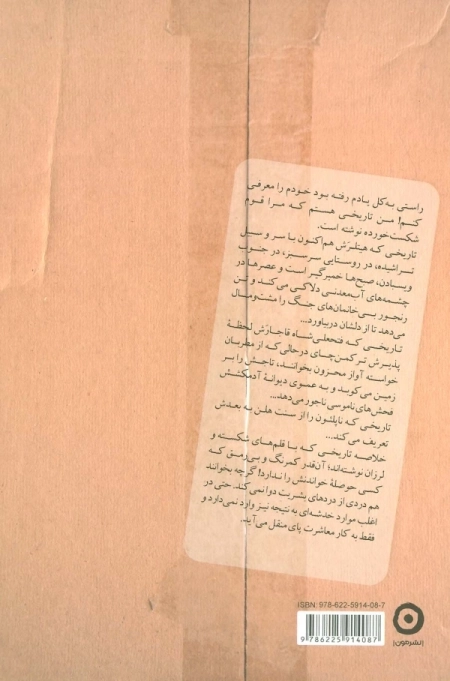 راستی به‌کل یادم رفته بود خودم را معرفی
کنم! من تاریخی هستم که مرا قوم
شکست‌خورده نوشته است.
تاریخی که هیتلرش هم‌اکنون با سر و سبیل
تراشیده، در روستایی سرسبز، در جنوب
ویسبادن، صبح‌ها خمیرگیر است و عصرها در
چشمه‌های آب‌معدنی دلاکی می‌کند و تن
رنجور بی‌خانمان‌های جنگ را مشت‌ومال
می‌دهد تا از دلشان دربیاورد...
تاریخی که فتحعلی‌شاه قاجارش لحظهٔ
پذیرش ترکمن‌چای درحالی‌که از مطربان
خواسته آواز محزون بخوانند، تاجش را بر
زمین می‌کوبد و به عموی دیوانهٔ آدمکشش
فحش‌های ناموسی ناجور می‌دهد...
تاریخی که ناپلئون را از سنت هلن به بعدش
تعریف می‌کند...
خلاصه تاریخی که با قلم‌های شکسته و
لرزان نوشته‌اند؛ آن‌قدر کمرنگ و بی‌رمق که
کسی حوصلهٔ خواندنش را ندارد! گرچه بخوانند
هم دردی از دردهای بشریت دوا نمی‌کند. حتی در
اغلب موارد خدشه‌ای به نتیجه نیز وارد نمی‌دارد و
فقط به کار معاشرت پای منقل می‌آید.
ISBN: 978-622-5914-08-7
9 786225 914087
|نشرمون|